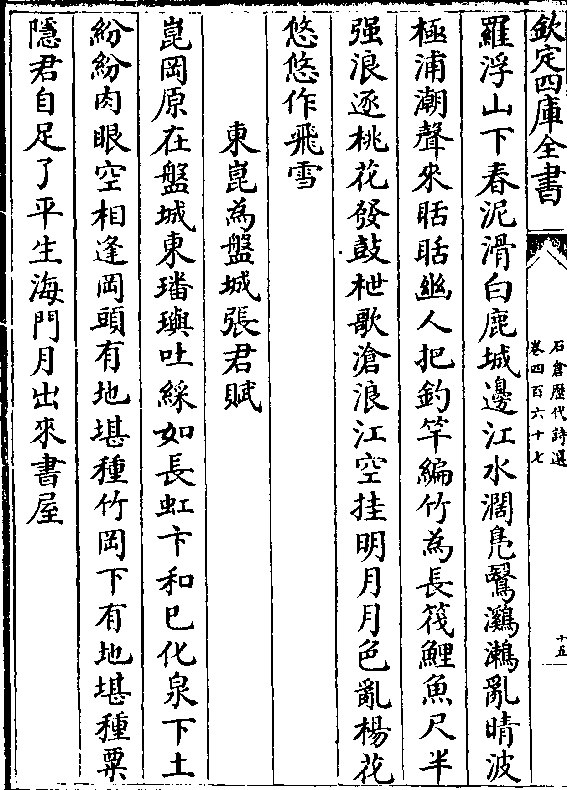 欽定四庫全書
石倉歴代詩選
卷四百六十七
十五
羅浮山下春泥滑白鹿城邊江水濶鳬鷖鸂鶒亂晴波
極浦潮聲來聒聒幽人把釣竿編竹為長筏鯉魚尺半
强浪逐桃花發鼓枻歌滄浪江空挂明月月色亂楊花
悠悠作飛雪
東崑為盤城張君賦
崑岡原在盤城東璠璵吐綵如長虹卞和已化泉下土
紛紛肉眼空相逢岡頭有地堪種竹岡下有地堪種粟
隱君自足了平生海門月出來書屋